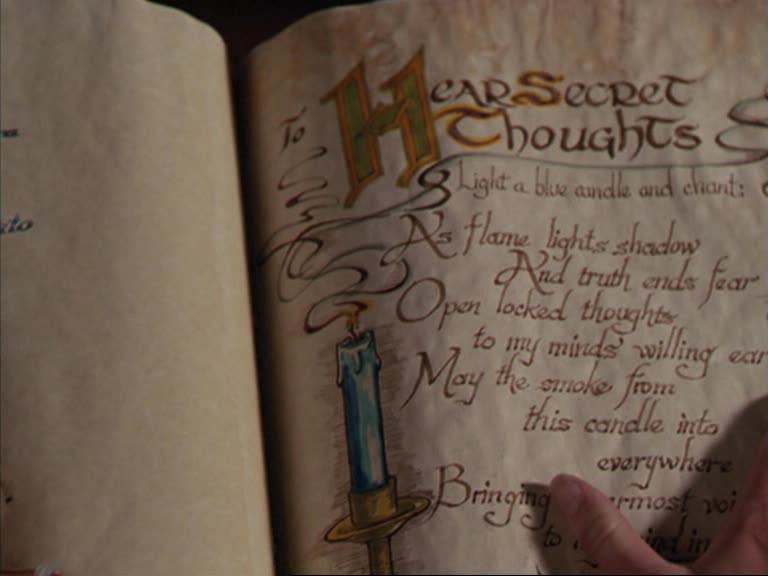 To
Hear Secret
Thoughts
Light a blue candle and chant:
As flame lights shadow
And truth ends fear
Open locked thoughts
to my minds' willing ear
May the smoke from
this candle into
everywhere
Bringing
to